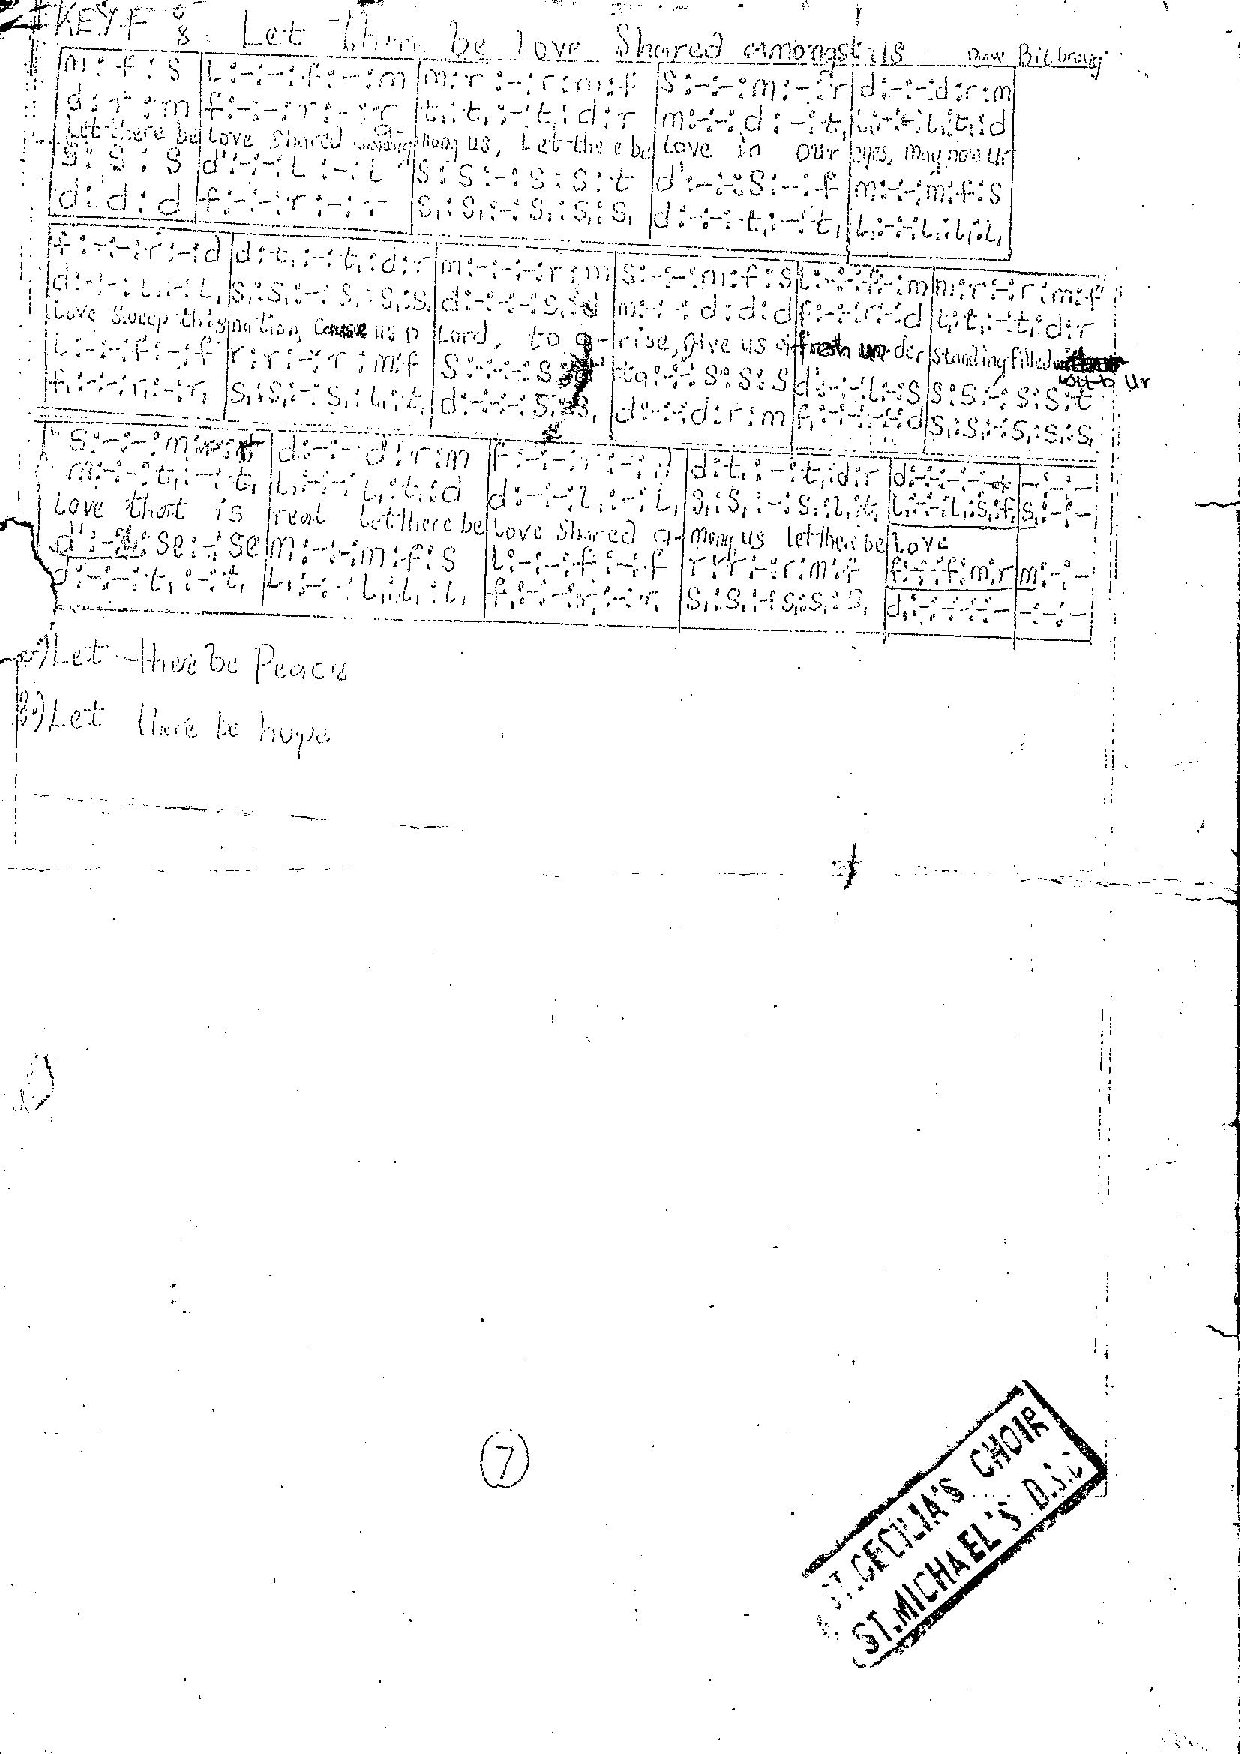 KEY F 8 Let there be love Shared amongst us Dave Bilbrough
m : f : s | l :-:-: f :-: m | m : r :-: r : m : f | s :-:-: m :-: r | d :-:-: d : r : m
d : r : m | f :-:-: r :-: r | t, : t, :-: t, : d : r | m :-:-: d :-: t, | l, :-:-: l, : t, : d
Let there be love Shared among us, Let there be love in our eyes, may now Ur
s : s : s | d' :-:-: l :-: l | s : s :-: s : s : t | d' :-:-: s :-: f | m :-:-: m : f : s
d : d : d | f :-:-: r :-: r | s, : s, :-: s, : s, : s, | d :-:-: t, :-: t, | l, :-:-: l, : l, : l,
f :-:-: r :-: d | d : t, :-: t, : d : r | m :-:-:-: r : m | s :-:-: m : f : s | l :-:-: f :-: m | m : r :-: r : m : f
d :-:-: l, :-: l, | s, : s, :-: s, : s, : s, | d :-:-:-: s, : d | m :-:-: d : d : d | f :-:-: r :-: d | t, : t, :-: t, : d : r
Love sweep this nation, cause us O Lord, to a-rise, give us a fresh un-der standing filled with Ur
l :-:-: f :-: f | r : r :-: r : m : f | s :-:-:-: s | ta :-:-: s : s : s | d' :-:-: l :-: s | s : s :-: s : s : t
f, :-:-: r, :-: r, | s, : s, :-: s, : l, : t, | d :-:-:-: s, : s, | d :-:-: d : r : m | f :-:-:-:-: d | s, : s, :-: s, : s, : s,
s :-:-: m | d :-:-: d : r : m | f :-:-: r :-: d | d : t, :-: t, : d : r | d :-:-:-:-: | -:-:-
m :-:-: t, :-: t, | l, :-:-: l, : t, : d | d :-:-: l, :-: l, | s, : s, :-: s, : l, : t, | l, :-:-: l, : s, : f, | s, :-:-
Love that is real Let there be Love Shared a-mong us let there be Love
d' :-: se :-: se | m :-:-: m : f : s | l :-:-: f :-: f | r : r :-: r : m : f | f :-:-: f : m : r | m :-:-
d :-:-: t, :-: t, | l, :-:-: l, : l, : l, | f, :-:-: r, :-: r, | s, : s, :-: s, : s, : s, | d, :-:-:-:-:- | -:-:-
2) Let there be Peace
3) Let there be hope
7
ST. CECILIA'S CHOIR
ST. MICHAEL'S D.S.C